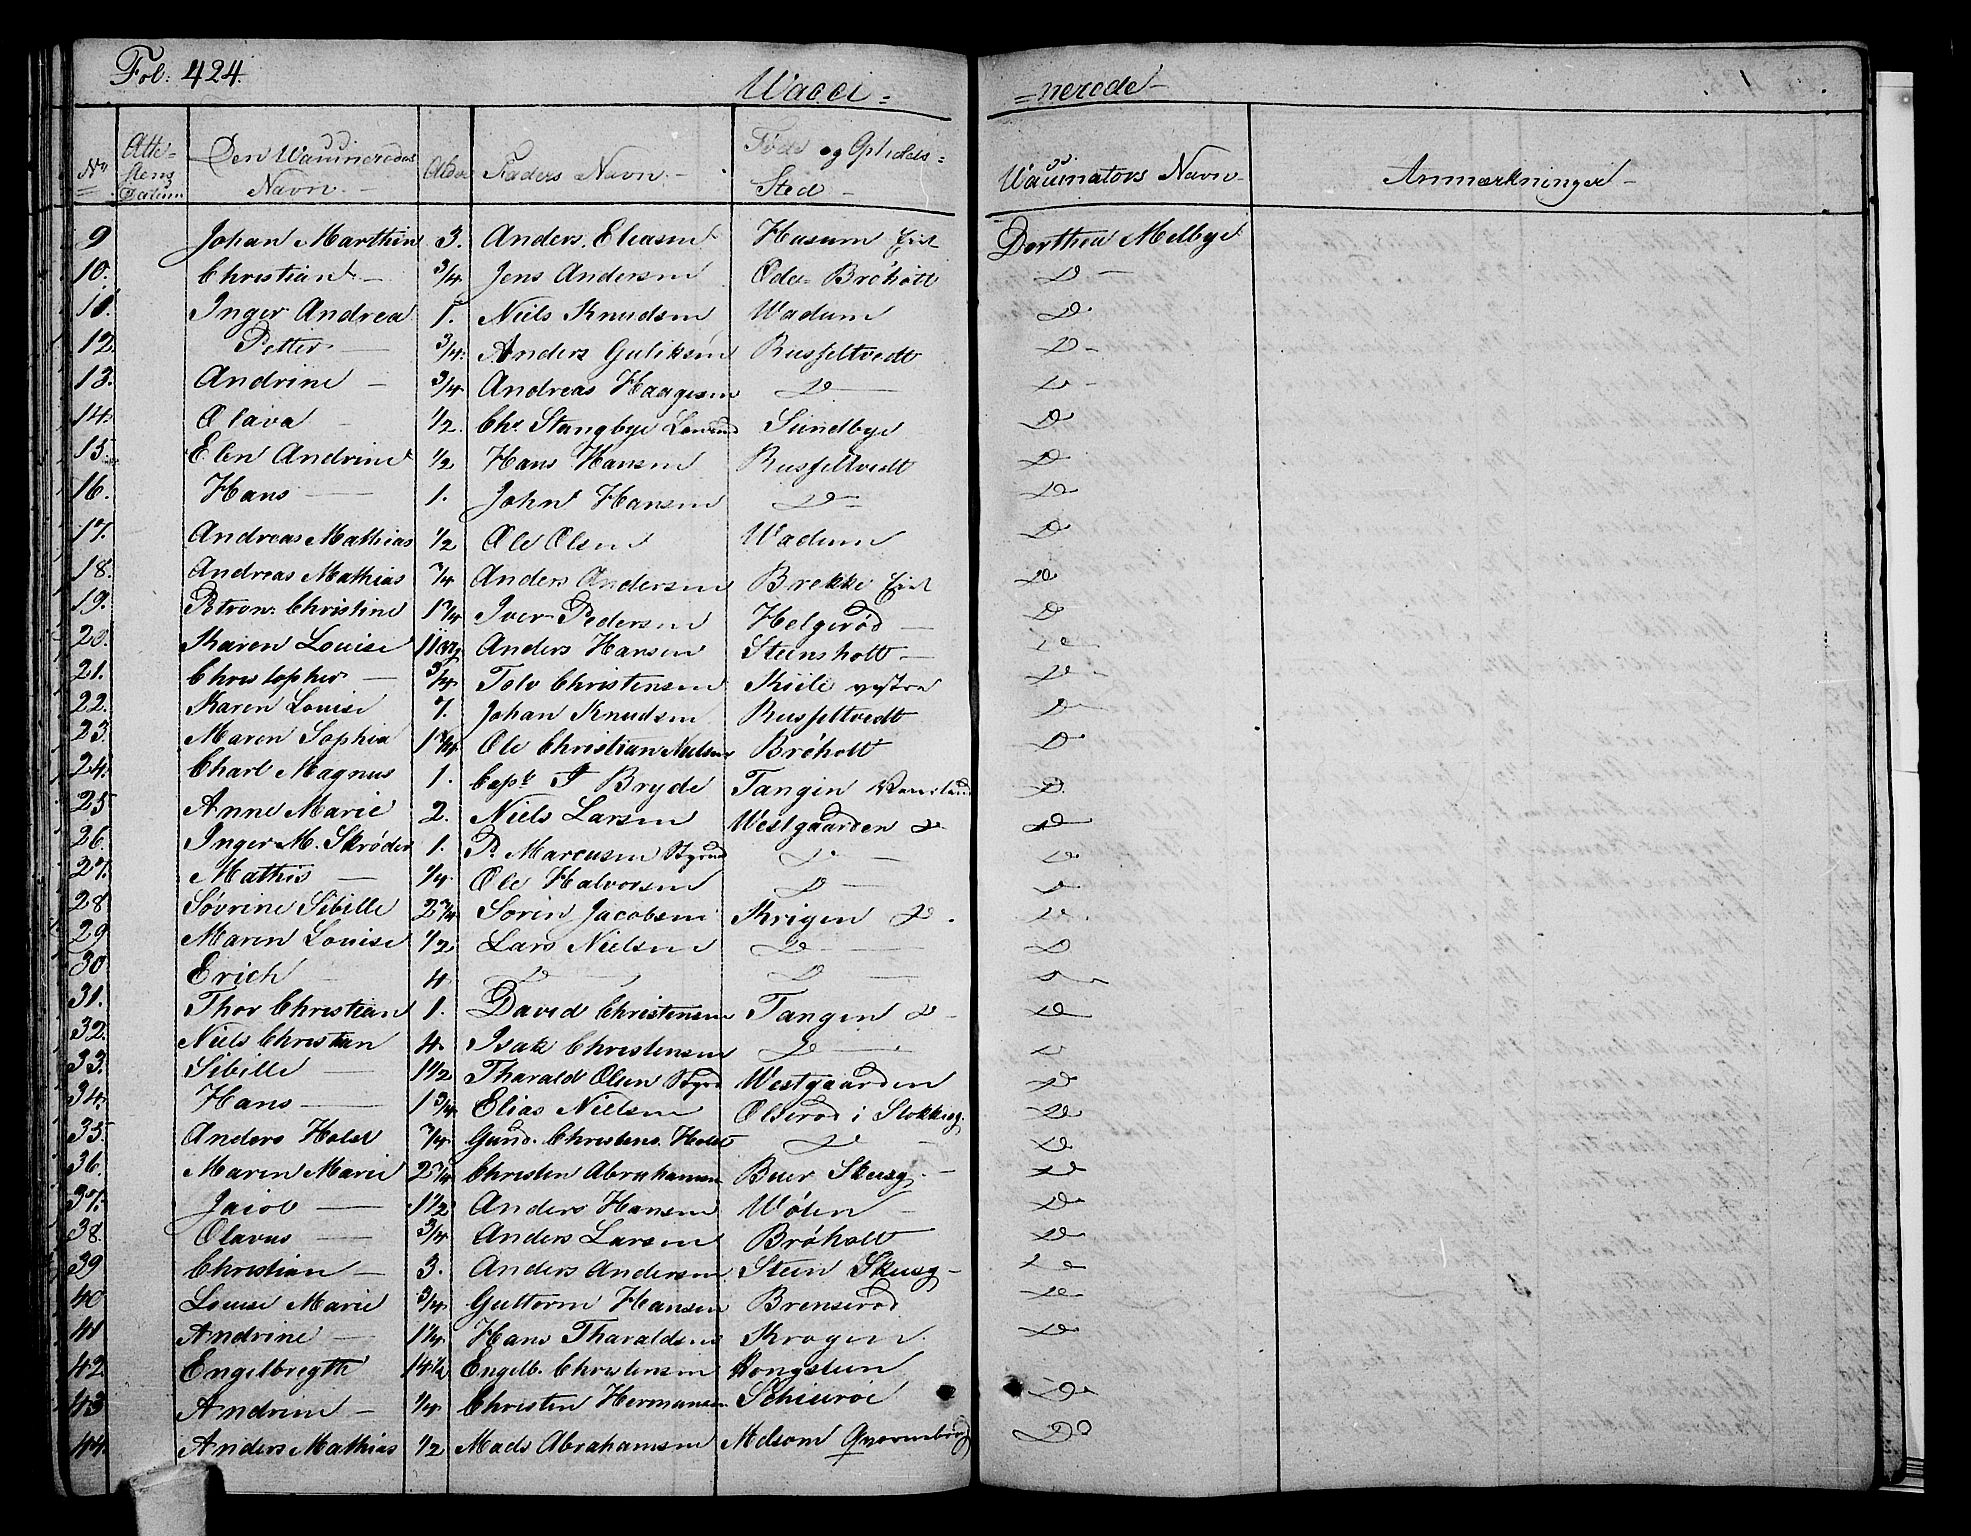 Fol: 424.
Wacci = = nerede
No Atte= stens Datum Den Waccineredes Navn Alder Faders Navn Føde og Opholds= Sted Waccinators Navn Anmærkninger
9 Johan Marthin 3. Anders Eliasen Hasum Dorthea Melbye
10. Christian 3/4 Jens Andersen Brøholt D
11. Inger Andrea 1. Niels Knudsen Wadum D
12. Petter 3/4. Anders Guliksen Russeltvedt D
13. Andrine 3/4 Andreas Haagesen D D
14. Olava 1/2. Chr. Stangbye Sundbye D
15. Elen Andrine 1/2 Hans Hansen Russeltvedt D
16. Hans 1. John Hansen D D
17. Andreas Mathias 1/2 Ole Olsen Wadum D
18. Andreas Mathias 3/4 Anders Andersen Brekke D
19. Petron: Christine 1 3/4 Iver Pedersen Helgerød D
20. Karen Louise Anders Hansen Steinsholt D
21. Christopher 3/4 Tolv Christensen Kiile vestre D
22. Karen Louise 7. Johan Knudsen Russeltvedt D
23. Maren Sophia 1 3/4 Ole Christian Nielsen Brøholt D
24. Charl Magnus 1. Capt. Bryde Tangen D
25 Anne Marie 2. Niels Larsen Westgaarden D D
26. Inger M. Skrøder 1. P. Marcusen Styrmd D D
27. Mathis 1/4 Ole Halvorsen D D
28 Søvrine Sibille 2 3/4 Sørin Jacobsen Krigen D. D
29 Maren Louise 1/2 Lars Nielsen D D
30 Erich 4 D D D
31. Thor Christian 1. David Christensen Tangen D D
32. Niels Christian 4. Isak Christensen D D
33. Sibille 1 1/2 Tharald Olsen Styrd Westgaarden D
34. Hans 1 3/4 Elias Nielsen Olserød i Stokke D
35. Anders Holst 3/4 Gund. Christens. Holst D D
36. Maren Marie 2 1/4 Christen Abrahamsen Buer D
37. Jacob 1 1/2 Anders Hansen Wølen D
38. Olavus 3/4 Anders Larsen Brøholt D
39 Christian 3. Anders Andersen Stein D
40 Louise Marie 3/4 Guttorm Hansen Brenserød D
41 Andrine 1 1/4 Hans Tharaldsens Krogen D
42 Engelbregth 14 1/2 Engelb. Christensen Hongstein
43 Andrine 1/4 Christen Hermansen D
44. Anders Mathias 1/2 Mads Abrahamsen Melsom Do